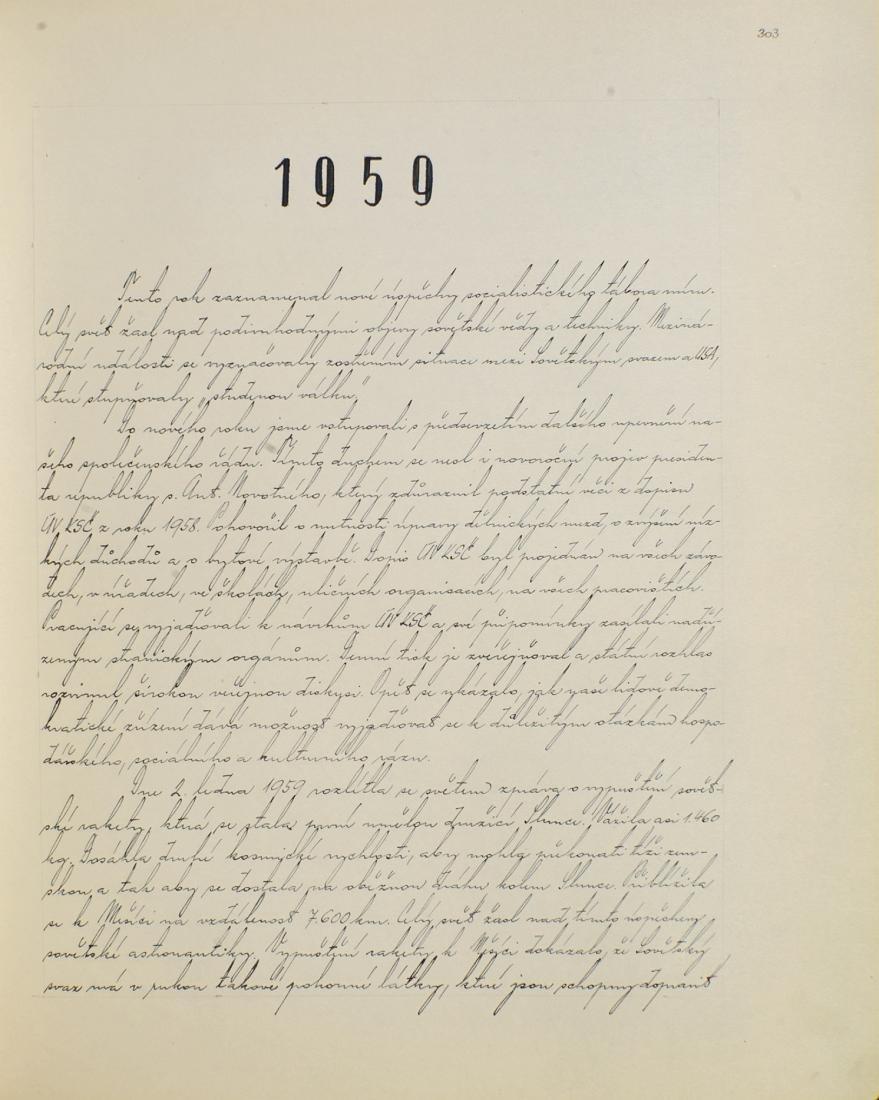 303
1959
Tento rok zaznamenal nové úspěchy socialistického tábora míru.
Celý svět žasl nad podivuhodnými objevy sovětské vědy a techniky. Meziná-
rodní události se vyznačovaly zostřením situace mezi Sovětským svazem a USA,
které stupňovaly „studenou válku“.
Do nového roku jsme vstupovali s předsevzetím dalšího upevnění na-
šeho společenského řádu. Tímto duchem se nesl i novoroční projev presiden-
ta republiky s. Ant. Novotného, který zdůraznil podstatné věci z dopisu
ÚV KSČ z roku 1958. Pohovořil o nutnosti úpravy dělnických mezd, o zvýšení níz-
kých důchodů a o bytové výstavbě. Dopis ÚV KSČ byl projednán na všech závo-
dech, v úřadech, ve školách, uličních organisacích, na všech pracovištích.
Pracující se vyjadřovali k návrhům ÚV KSČ a své připomínky zasílali nadří-
zeným stranickým orgánům. Denní tisk je zveřejňoval a státní rozhlas
rozvinul širokou veřejnou diskusi. Opět se ukázalo, jak naše lidově demo-
kratické zřízení dává možnost vyjadřovat se k důležitým otázkám hospo-
dářského, sociálního a kulturního rázu.
Dne 2. ledna 1959 rozlétla se světem zpráva o vypuštění sovět-
ské rakety, která se stala první umělou družicí Slunce. Vážila asi 1.460
kg. Dosáhla druhé kosmické rychlosti, aby mohla překonati tíži zem-
skou a tak aby se dostala na oběžnou dráhu kolem Slunce. Přiblížila
se k Měsíci na vzdálenost 7.600 km. Celý svět žasl nad tímto úspěchem
sovětské astronautiky. Vypuštění rakety k Měsíci dokázalo, že Sovětský
svaz má v rukou takové pohonné látky, které jsou schopny dopravit